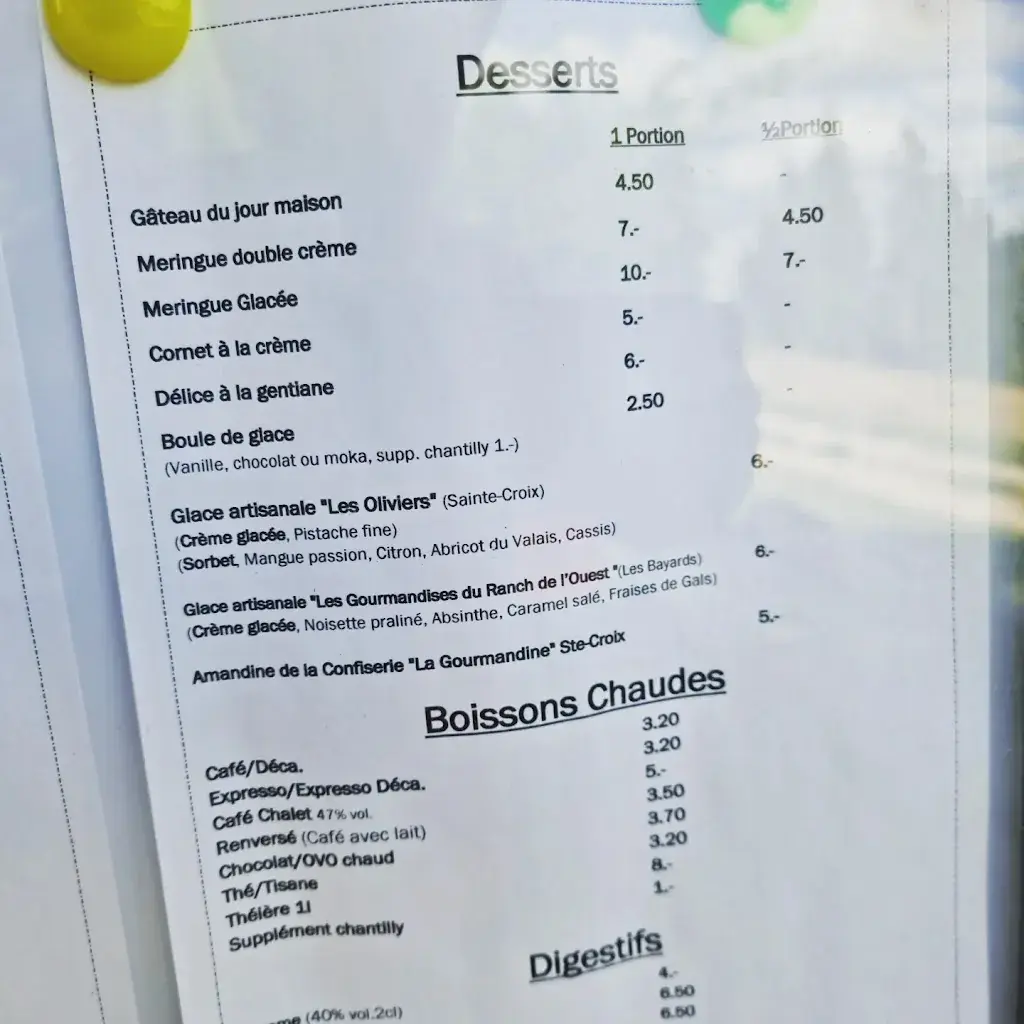 Desserts
1 Portion ½ Portion
Gâteau du jour maison 4.50 -
Meringue double crème 7.- 4.50
Meringue Glacée 10.- 7.-
Cornet à la crème 5.- -
Délice à la gentiane 6.- -
Boule de glace 2.50 -
(Vanille, chocolat ou moka, supp. chantilly 1.-)
Glace artisanale "Les Oliviers" (Sainte-Croix) 6.-
(Crème glacée, Pistache fine)
(Sorbet, Mangue passion, Citron, Abricot du Valais, Cassis)
Glace artisanale "Les Gourmandises du Ranch de l'Ouest "(Les Bayards) 6.-
(Crème glacée, Noisette praliné, Absinthe, Caramel salé, Fraises de Gals)
Amandine de la Confiserie "La Gourmandine" Ste-Croix 5.-
Boissons Chaudes
Café/Déca. 3.20
Expresso/Expresso Déca. 3.20
Café Chalet 47% vol. 5.-
Renversé (Café avec lait) 3.50
Chocolat/OVO chaud 3.70
Thé/Tisane 3.20
Théière 1l 8.-
Supplément chantilly 1.-
Digestifs
4.-
(40% vol.2cl) 6.50
6.50